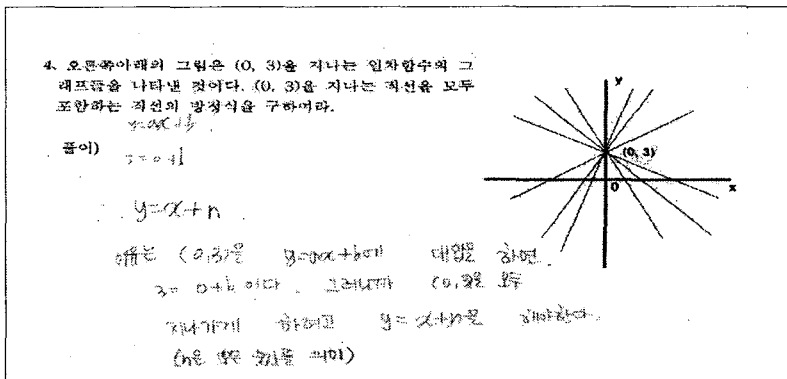 4. 오른쪽아래의 그림은 (0, 3)을 지나는 일차함수의 그
래프들을 나타낸 것이다. (0, 3)을 지나는 직선을 모두
포함하는 직선의 방정식을 구하여라.
y=ax+b
풀이) 3=0+b
y=x+n
이유는 (0,3)을 y=ax+b에 대입을 하면
3= 0+b 이다. 그러니까 (0,3)을 모두
지나가게 하려고 y= x+n을 해야한다.
(n은 모든 의미)
y
(0, 3)
0
x